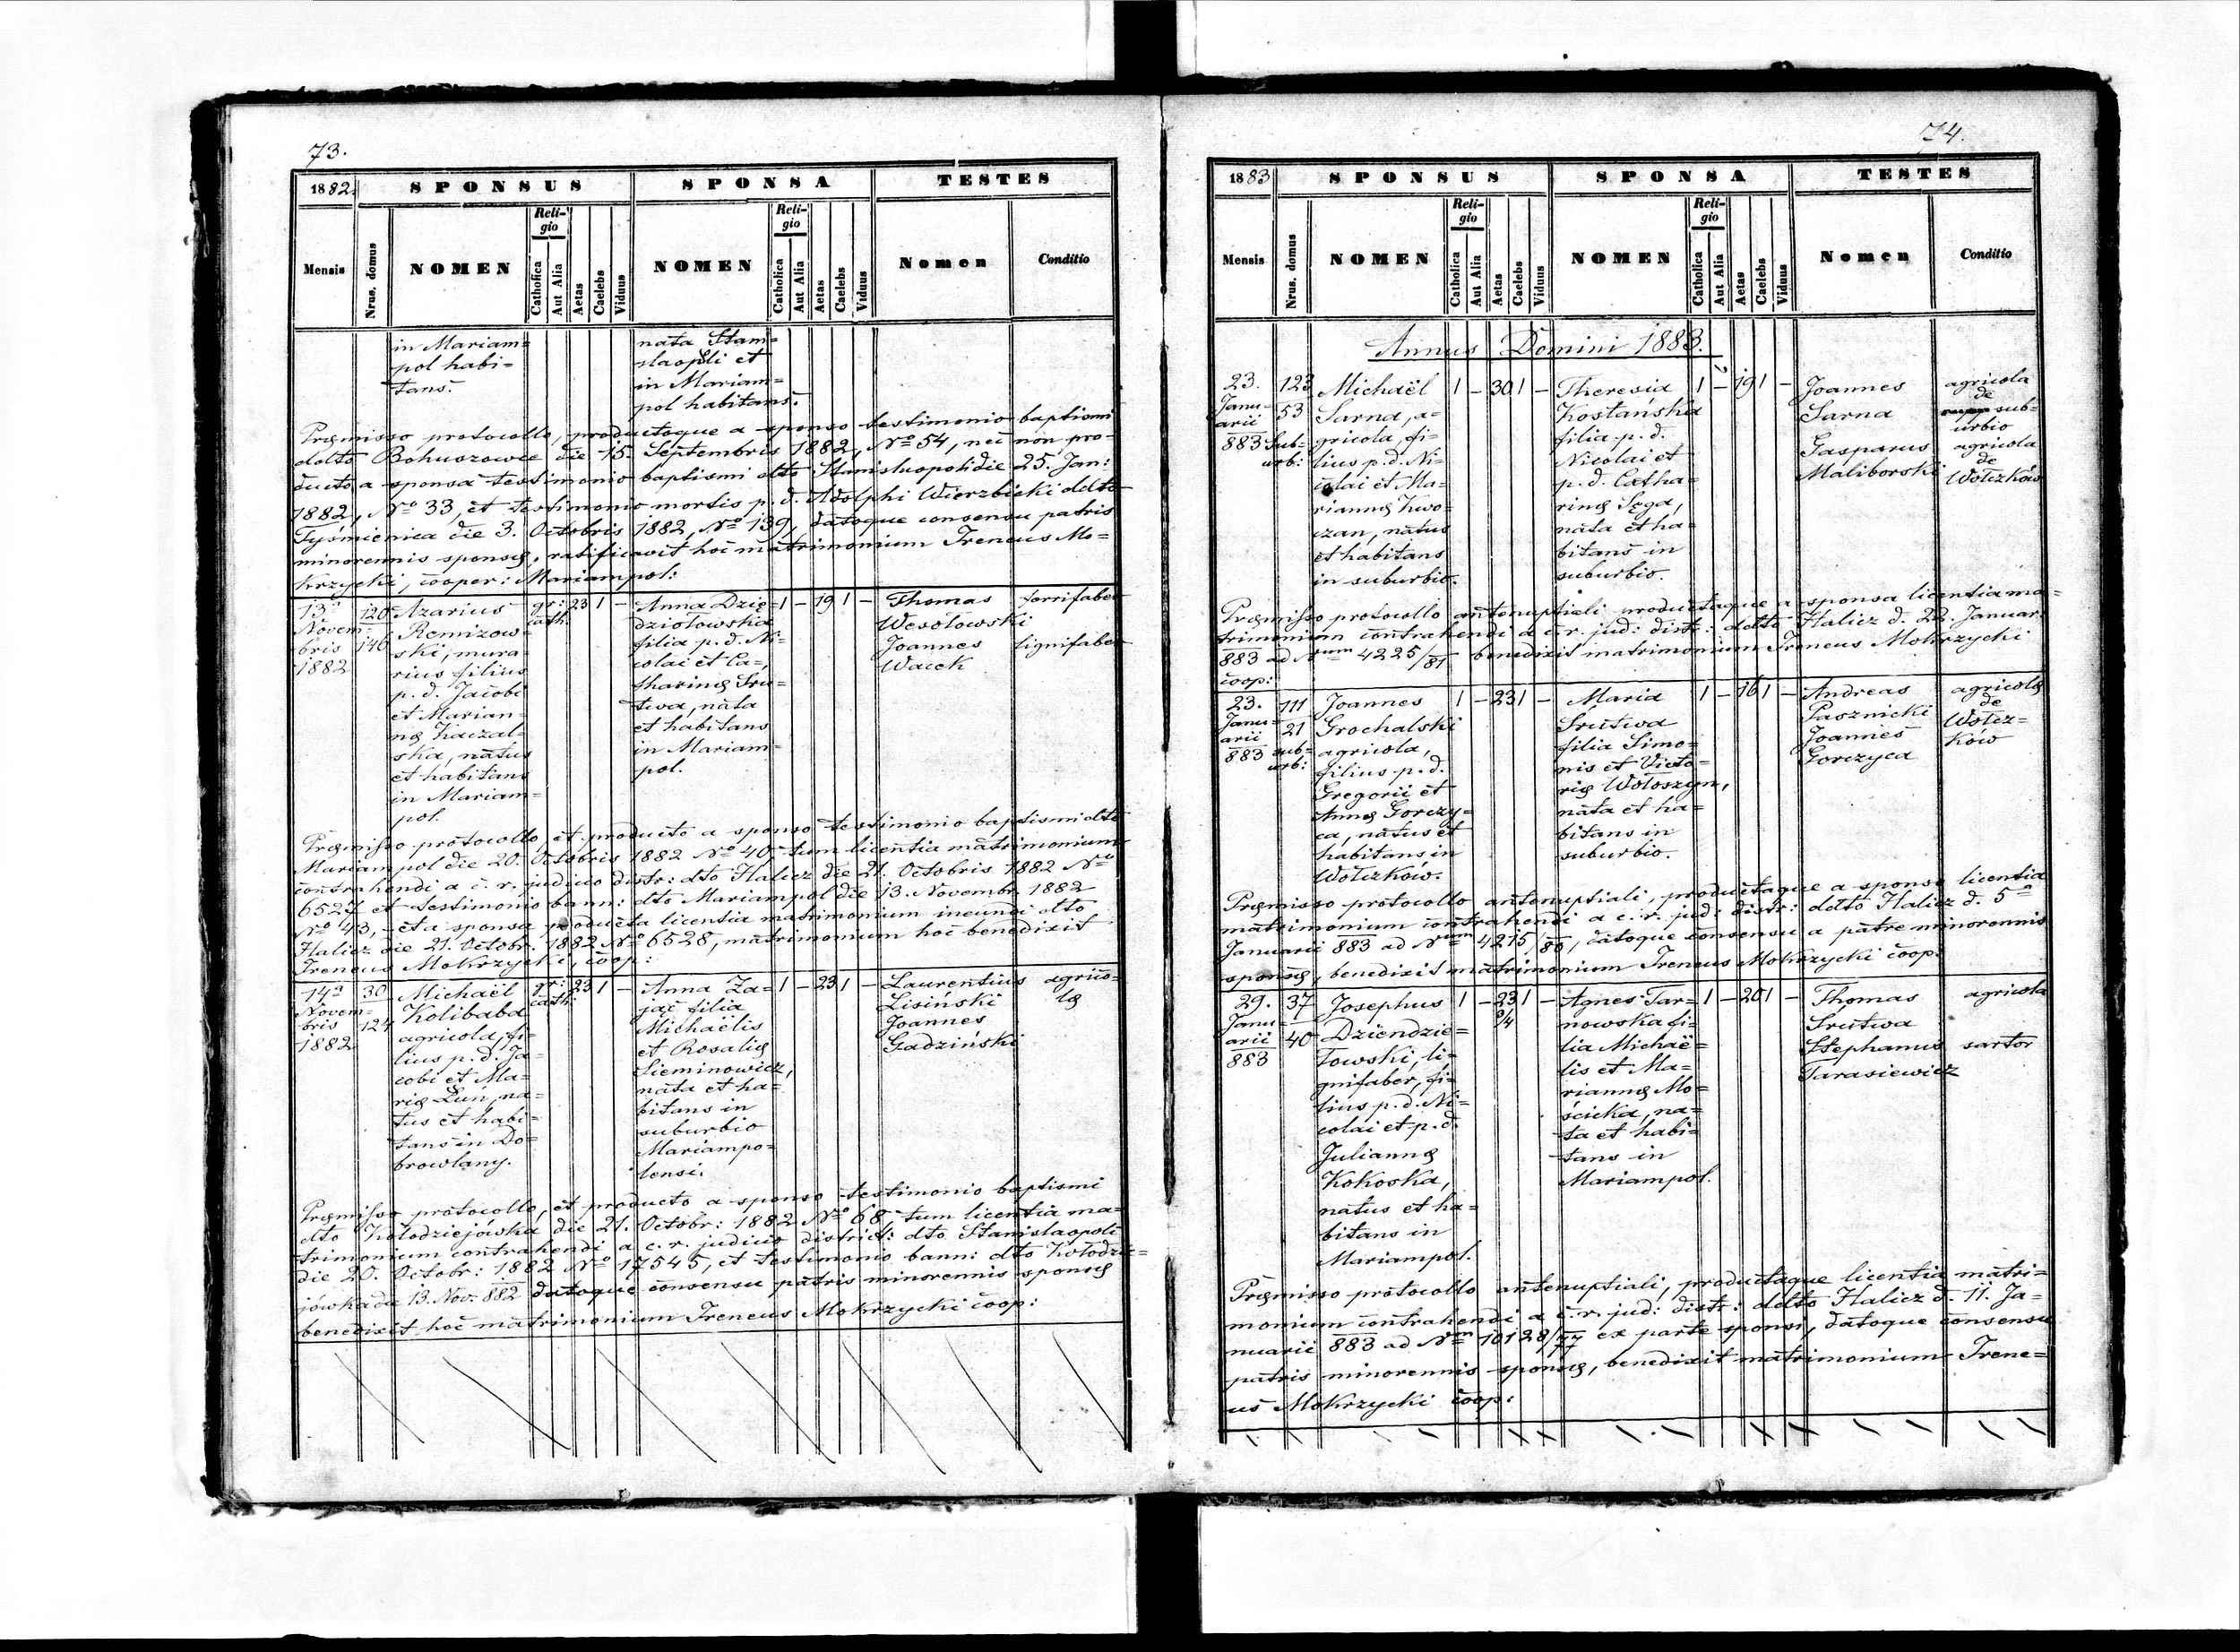 73.
1882.
SPONSUS
SPONSA
TESTES
Mensis
Nrus. domus
NOMEN
Religio
Catholica
Aut Alia
Aetas
Caelebs
Viduus
NOMEN
Religio
Catholica
Aut Alia
Aetas
Caelebs
Viduus
Nomen
Conditio
in Mariam=
pol habi=
tans.
nata Stani=
slaopoli et
in Mariam=
pol habitans.
Præmisso protocollo, productoque a sponso testimonio baptismi
ddto Bohuszowce die 15. Septembris 1882, No 54, nec non pro=
ducto a sponsa testimonio baptismi dto Stanislaopoli die 25. Jan:
1882, No 33, et testimonio mortis p. d. Adolphi Wierzbicki ddto
Tyśmienica die 3. Octobris 1882, No 139, datoque consensu patris
minorennis sponsæ, ratificavit hoc matrimonium Ireneus Mo=
krzycki, cooper: Mariampol:
13a
Novem=
bris
1882
120
146
Azarius
Remizow=
ski, mura=
rius filius
p. d. Jacobi
et Marian=
næ Kaczal=
ska, natus
et habitans
in Mariam=
pol.
gr:
cath:
23 1 –
Anna Dzię=
dziołowska
filia p. d. Ni=
colai et Ca=
tharinæ Sru=
twa, nata
et habitans
in Mariam=
pol.
1 – 19 1 –
Thomas
Wesołowski
Joannes
Wacek
fornifaber
lignifaber
Præmisso protocollo, et producto a sponso testimonio baptismi dto
Mariampol die 20. Octobris 1882 No 40, tum licentia matrimonium
contrahendi a c. r. judicio distr: dto Halicz die 21. Octobris 1882 No
6527 et testimonio bann: dto Mariampol die 13. Novembr. 1882
No 43, – et a sponsa producta licentia matrimonium ineundi dto
Halicz die 21. Octobr. 1882 No 6528, matrimonium hoc benedixit
Ireneus Mokrzycki, coop:
14a
Novem=
bris
1882
30
124
Michaël
Kolibaba
agricola, fi=
lius p. d. Ja=
cobi et Ma=
riæ Lun, na=
tus et habi=
tans in Do=
browlany.
gr:
cath:
23 1 –
Anna Za=
jąc filia
Michaëlis
et Rosaliæ
Sieminowicz,
nata et ha=
bitans in
suburbio
Mariampo=
lensi.
1 – 23 1 –
Laurentius
Lisiński
Joannes
Gadziński
agrico=
læ
Præmisso protocollo, et producto a sponso testimonio baptismi
dto Kołodziejówka die 21. Octobr: 1882 No 68 tum licentia ma=
trimonium contrahendi a c. r. judicio district: dto Stanislaopoli
die 20. Octobr: 1882 No 17545, et testimonio bann: dto Kołodzie=
jówka du 13. Nov. 882 datoque consensu patris minorennis sponsæ
benedixit hoc matrimonium Ireneus Mokrzycki coop:
74.
1883
SPONSUS
SPONSA
TESTES
Mensis
Nrus. domus
NOMEN
Religio
Catholica
Aut Alia
Aetas
Caelebs
Viduus
NOMEN
Religio
Catholica
Aut Alia
Aetas
Caelebs
Viduus
Nomen
Conditio
Annus Domini 1883.
23.
Janu=
arii
883
123
53
Sub=
urb:
Michaël
Sarna, a=
gricola, fi=
lius p. d. Ni=
colai et Ma=
riannæ Kwo=
czan, natus
et habitans
in suburbio.
1 – 30 1 –
Theresia
Kostańska
filia p. d.
Nicolai et
p. d. Catha=
rinæ Sęga,
nata et ha=
bitans in
suburbio.
1 – 19 1 –
Joannes
Sarna
Gasparus
Maliborski
agricola
de
sub=
urbio
agricola
de
Wołczków
Præmisso protocollo antenuptiali productaque a sponsa licentia ma=
trimonium contrahendi a c. r. jud: distr: ddto Halicz d. 22. Januar:
883 ad Num 4225/81 benedixit matrimonium Ireneus Mokrzycki
coop:
23.
Janu=
arii
883
111
21
sub=
urb:
Joannes
Grochalski
agricola,
filius p. d.
Gregorii et
Annæ Gorczy=
ca, natus et
habitans in
Wołczków.
1 – 23 1 –
Maria
Srutwa
filia Simo=
nis et Victo=
riæ Wołoszyn,
nata et ha=
bitans in
suburbio.
1 – 16 1 –
Andreas
Pasznicki
Joannes
Gorczyca
agricolæ
de
Wołcz=
ków
Præmisso protocollo antenuptiali, productaque a sponso licentia
matrimonium contrahendi a c. r. jud: distr: ddto Halicz d. 5a
Januarii 883 ad Num 4215/80, datoque consensu a patre minorennis
sponsæ, benedixit matrimonium Ireneus Mokrzycki coop.
29.
Janu=
arii
883
37
40
Josephus
Dziendzie=
łowski, li=
gnifaber, fi=
lius p. d. Ni=
colai et p. d.
Juliannæ
Kokoska,
natus et ha=
bitans in
Mariampol.
1 – 23 1 –
3/4
Agnes Tar=
nowska fi=
lia Michaë=
lis et Ma=
riannæ Mo=
ścicka, na=
ta et habi=
tans in
Mariampol.
1 – 20 1 –
Thomas
Srutwa
Stephanus
Tarasiewicz
agricola
sartor
Præmisso protocollo antenuptiali, productaque licentia matri=
monium contrahendi a c. r. jud: distr: ddto Halicz d. 11. Ja=
nuarii 883 ad Num 10128/77 ex parte sponsi, datoque consensu
patris minorennis sponsæ, benedixit matrimonium Irene=
us Mokrzycki coop: